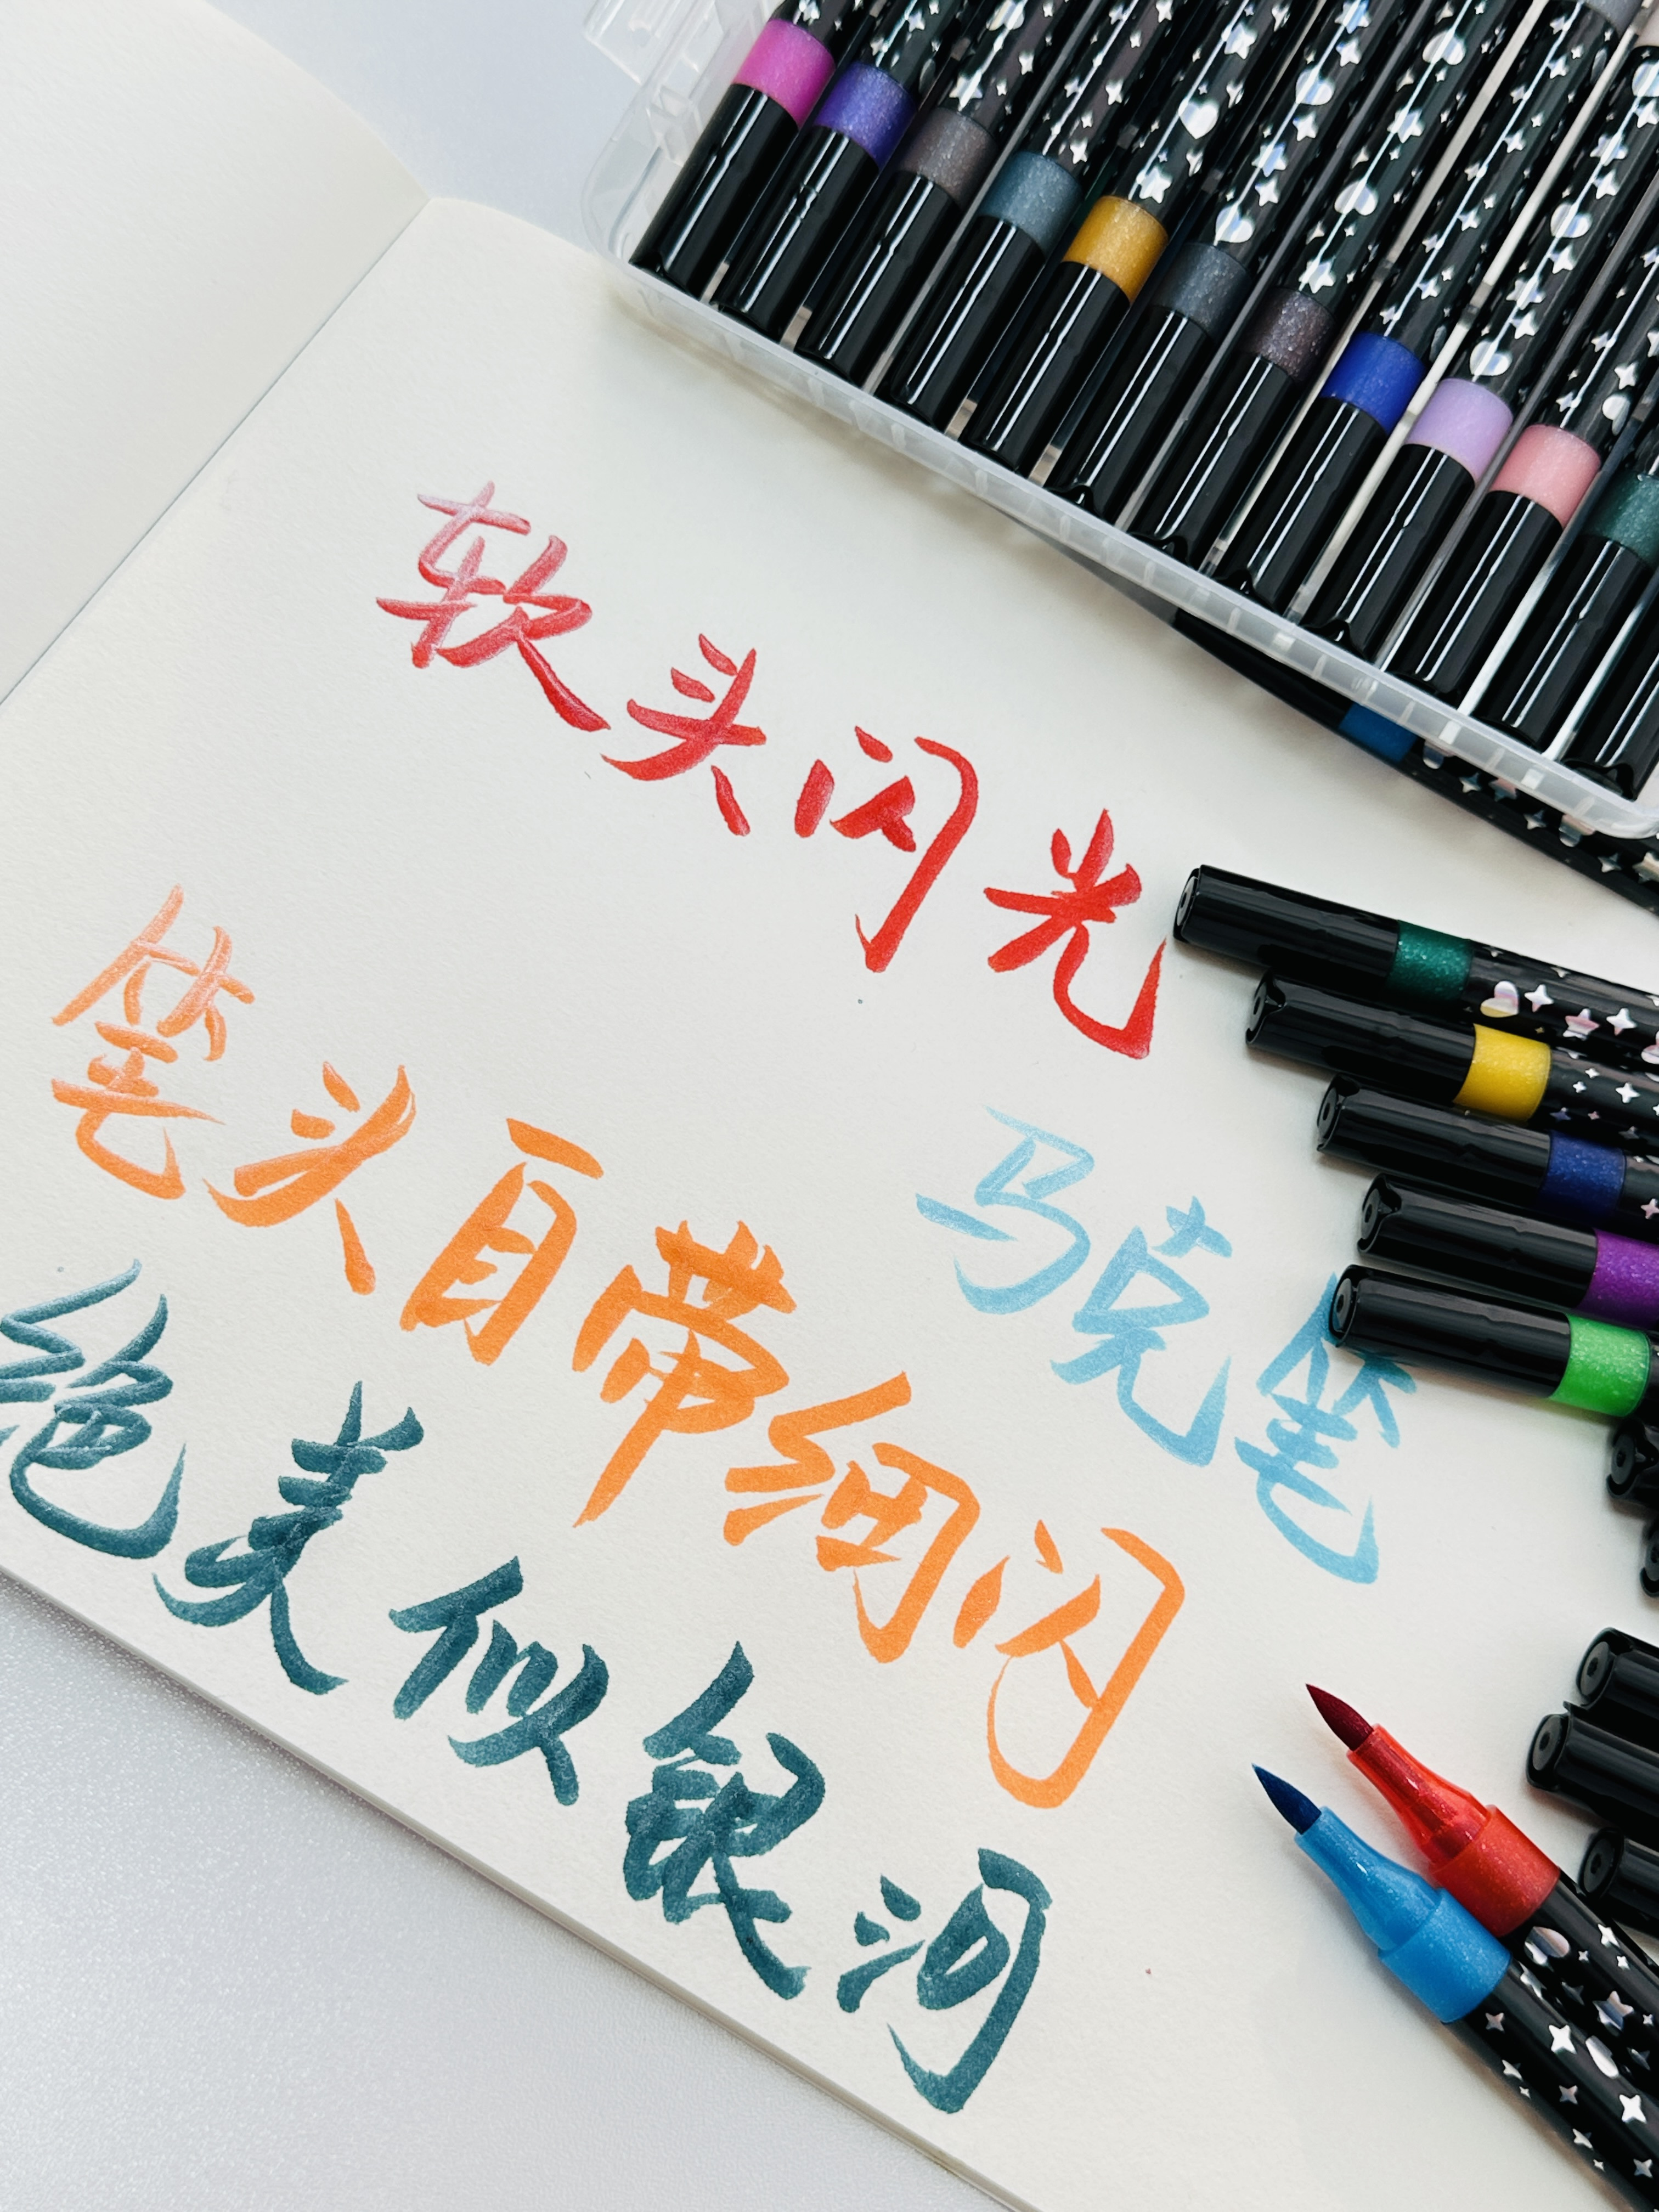 软头闪光
马克笔
笔头自带细闪
绝美似银河